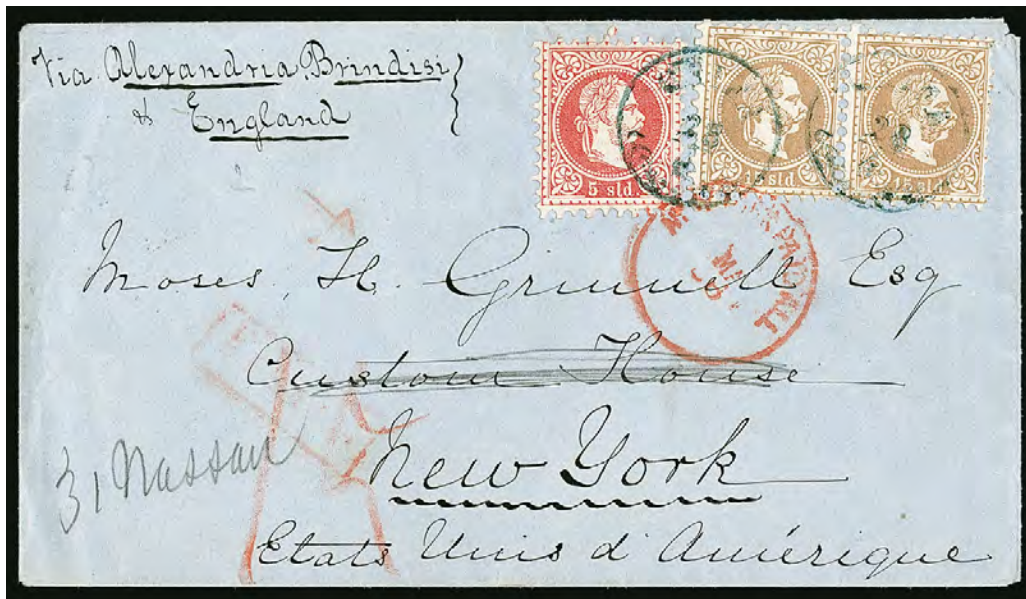 Via Alexandria, Brindisi
& England
5 sld.
15 sld.
15 sld.
PAID ALL
Moses H. Grinnell Esq
Custom House
31 Nassau
New York
Etats Unis d'Amérique